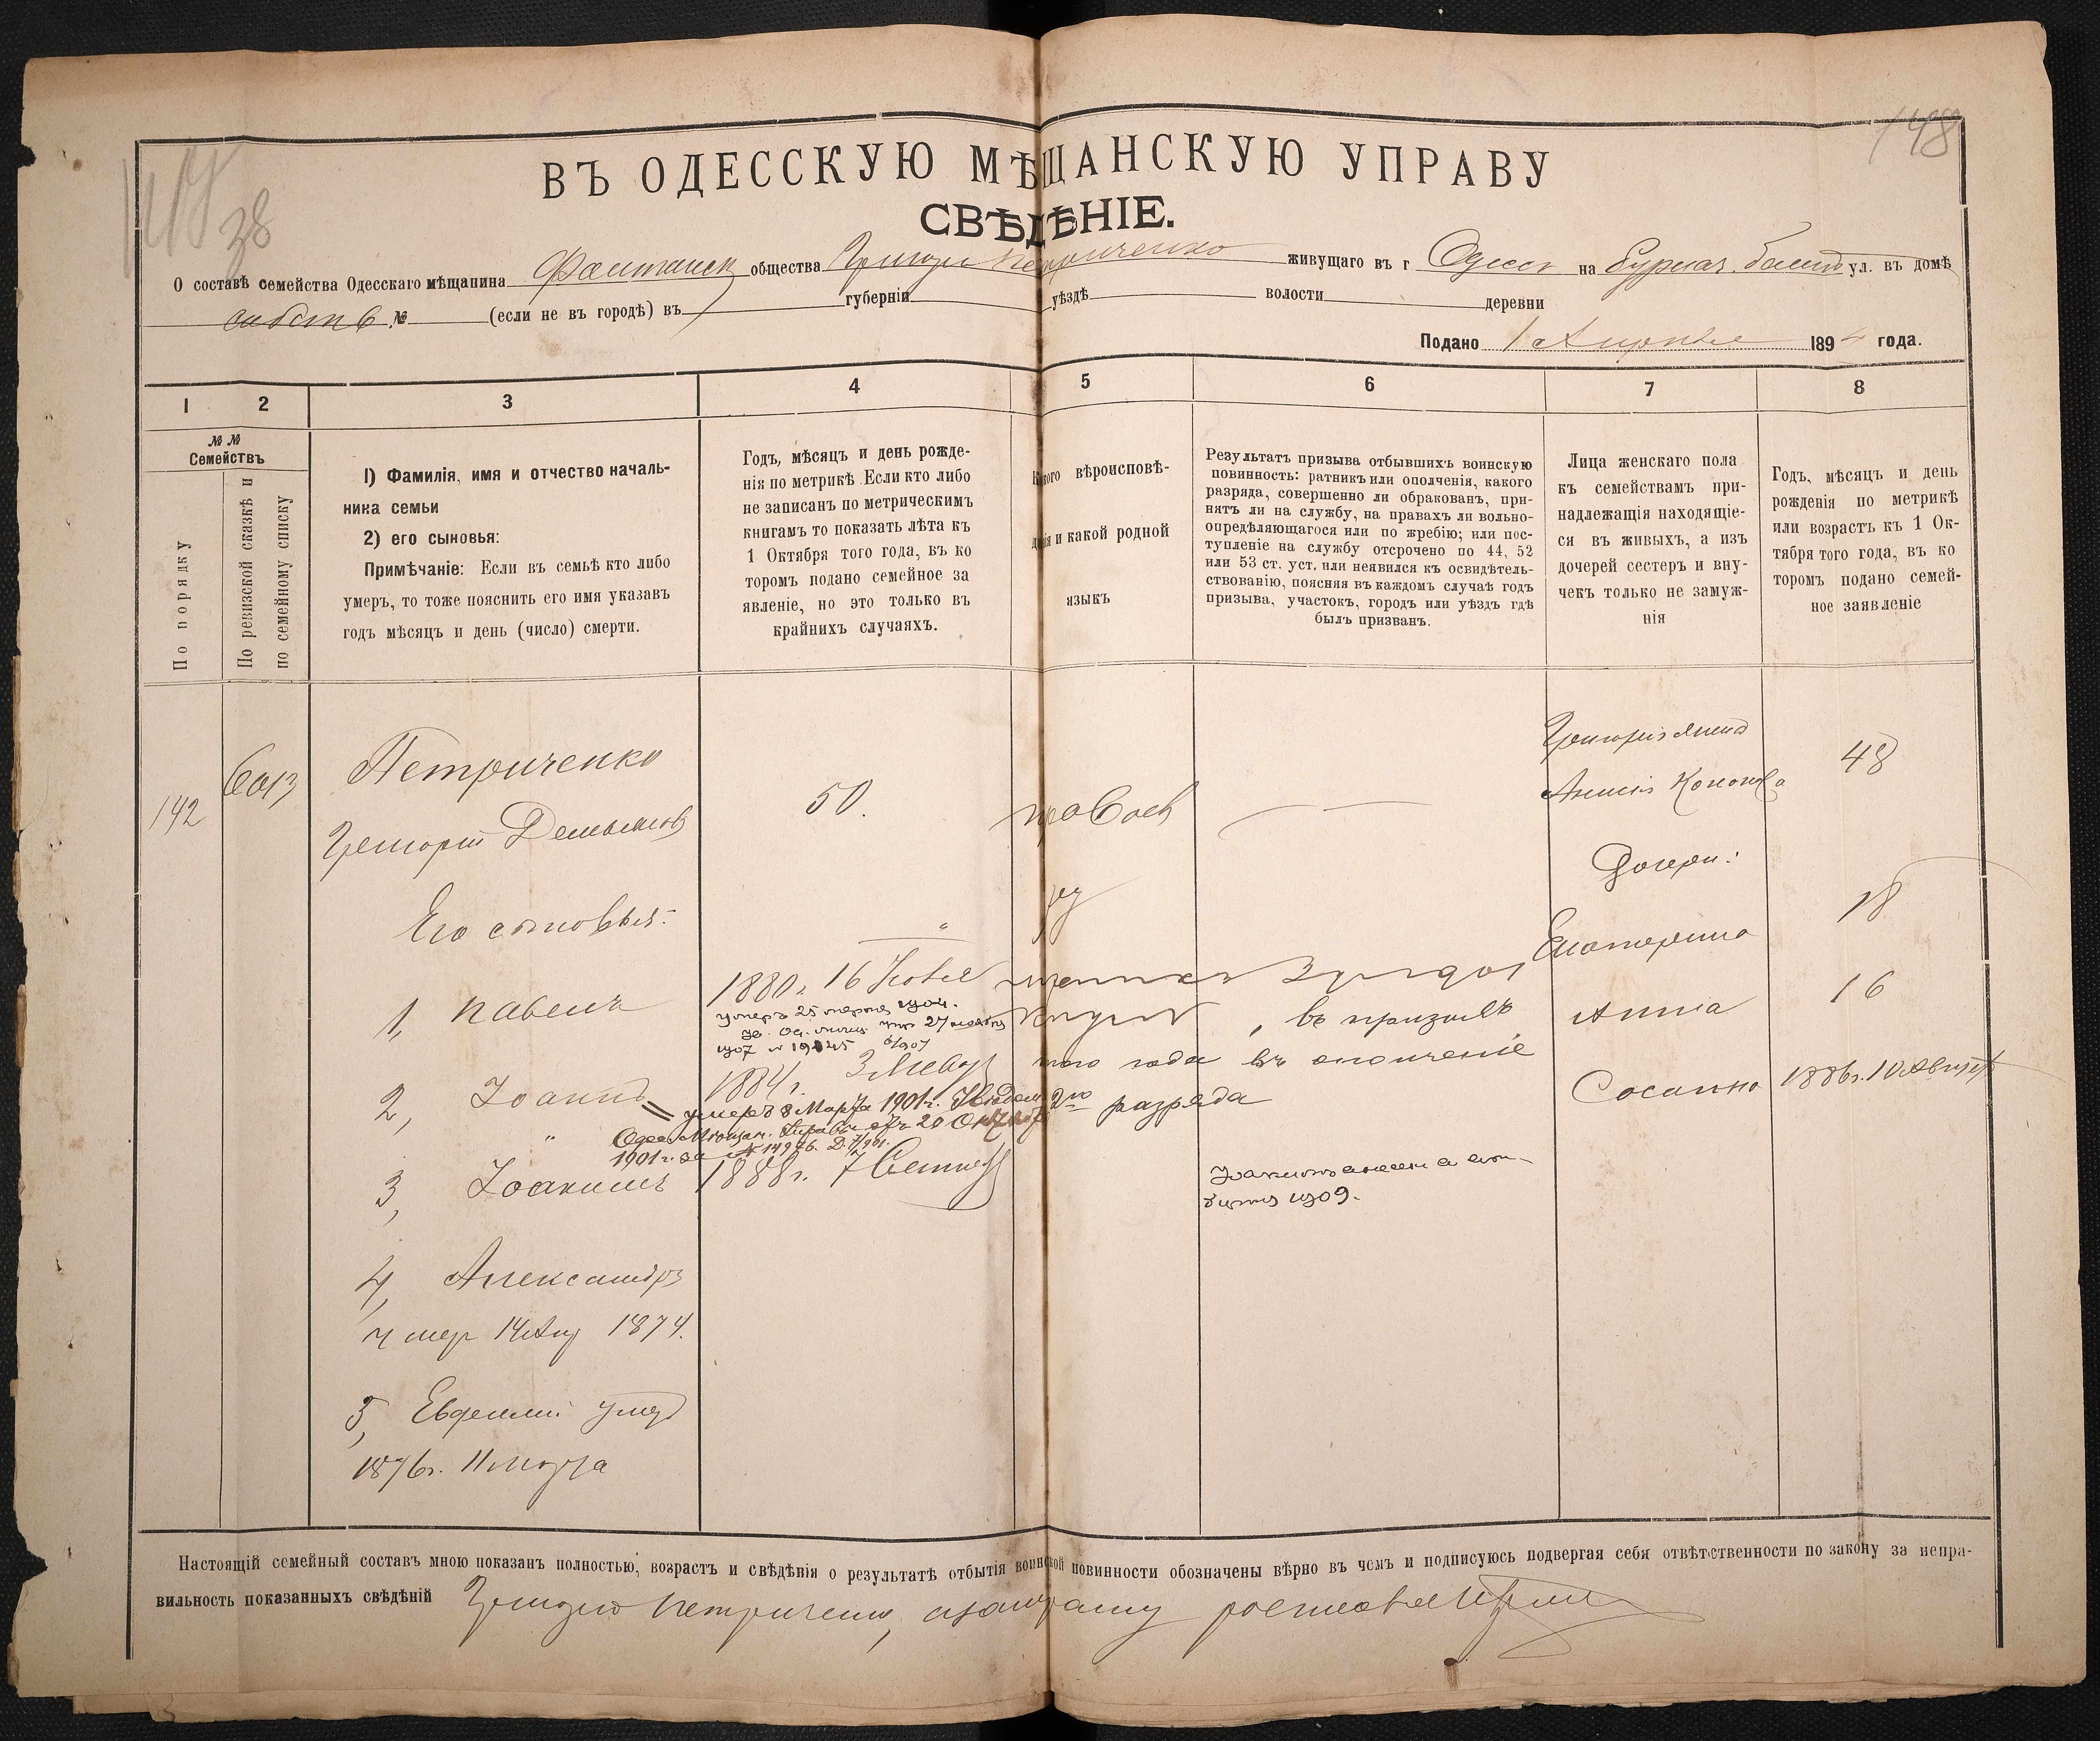 148
38
ВЪ ОДЕССКУЮ МѢЩАНСКУЮ УПРАВУ
СВѢДѢНІЕ.
О составѣ семейства Одесскаго мѣщанина Фонтанск общества Григорія Петриченко живущаго въ г Одессѣ на ул. въ домѣ
собств № (если не въ городѣ) въ губерніи уѣздѣ волости деревни
Подано 1 Апрѣля 1894 года.
1 2 3 4 5 6 7 8
№ №
Семействъ
По порядку
По ревизской сказкѣ и
по семейному списку
1) Фамилія, имя и отчество началь-
ника семьи
2) его сыновья:
Примѣчаніе: Если въ семьѣ кто либо
умеръ, то тоже пояснить его имя указавъ
годъ мѣсяцъ и день (число) смерти.
Годъ, мѣсяцъ и день рожде-
нія по метрикѣ Если кто либо
не записанъ по метрическимъ
книгамъ то показать лѣта къ
1 Октября того года, въ ко
торомъ подано семейное за
явленіе, но это только въ
крайнихъ случаяхъ.
Какого вѣроисповѣ-
данія и какой родной
языкъ
Результатъ призыва отбывшихъ воинскую
повинность: ратникъ или ополченія, какого
разряда, совершенно ли обракованъ, при-
нятъ ли на службу, на правахъ ли вольно-
опредѣляющагося или по жребію; или пос-
тупленіе на службу отсрочено по 44, 52
или 53 ст. уст. или неявился къ освидѣтель-
ствованію, поясняя въ каждомъ случаѣ годъ
призыва, участокъ, городъ или уѣздъ гдѣ
былъ призванъ.
Лица женскаго пола
къ семействамъ при-
надлежащія находящіе-
ся въ живыхъ, а изъ
дочерей сестеръ и вну-
чекъ только не замуж-
нія
Годъ, мѣсяцъ и день
рожденія по метрикѣ
или возрастъ къ 1 Ок-
тября того года, въ ко
торомъ подано семей-
ное заявленіе
142
6013
Петриченко
Григорій Демьяновъ
50.
правосл
Григорія жена
Анисія Кононова
48
Его сыновья:
Дочери:
Екатерина
18
1, Павелъ
1880г. 16
умеръ 25 марта
въ призывѣ
Анна
16
2, Іоаннъ
1884г.
того года въ ополченіе
2го разряда
умеръ 8 Марта 1901г. Свидѣт.
Одес. Мѣщан. Управы отъ 20 Октяб
1901г. за № 14926.
Сосанна
1886г. 10 Августа
3, Іоакимъ
1888г. 7 Сентяб
1909.
4, Александръ
умер 14 Апр 1874.
5, Евфимій умер
1876г. 11 марта
Настоящій семейный составъ мною показанъ полностью, возрастъ и свѣдѣнія о результатѣ отбытія воинской повинности обозначены вѣрно въ чемъ и подписуюсь подвергая себя отвѣтственности по закону за непра-
вильность показанныхъ свѣдѣній Григорій Петриченко,